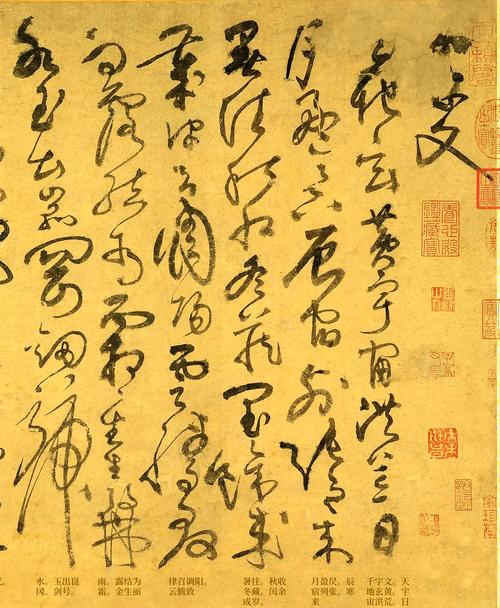 千字文
天地玄黄宇宙洪荒日
月盈昃辰宿列张寒来
暑往秋收冬藏闰余成岁
律召调阳云腾致
雨露结为霜金生丽
水玉出昆冈剑号
千字文 天
地玄黄。宇
宙洪荒。日
月盈昃。辰
宿列张。寒
来
暑往。秋收
冬藏。闰余
成岁。
律召调阳。
云腾致
雨。露结为
霜。金生丽
水。玉出昆
冈。剑号